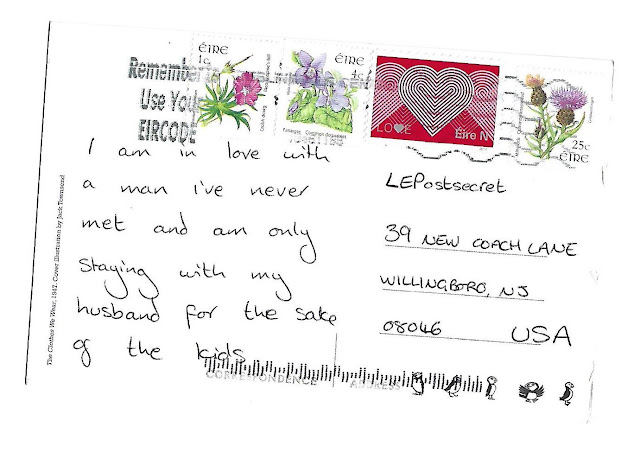 ÉIRE
1c
ÉIRE
4c
LOVE
Éire N
25c
ÉIRE
Remember to
Use You
EIRCODE
I am in love with
a man i've never
met and am only
staying with my
husband for the sake
of the kids
LEPostsecret
39 NEW COACH LANE
WILLINGBORO, NJ
08046 USA
CORRESPONDENCE
ADDRESS
The Clothes We Wear, 1942. Cover illustration by Jack Townsend